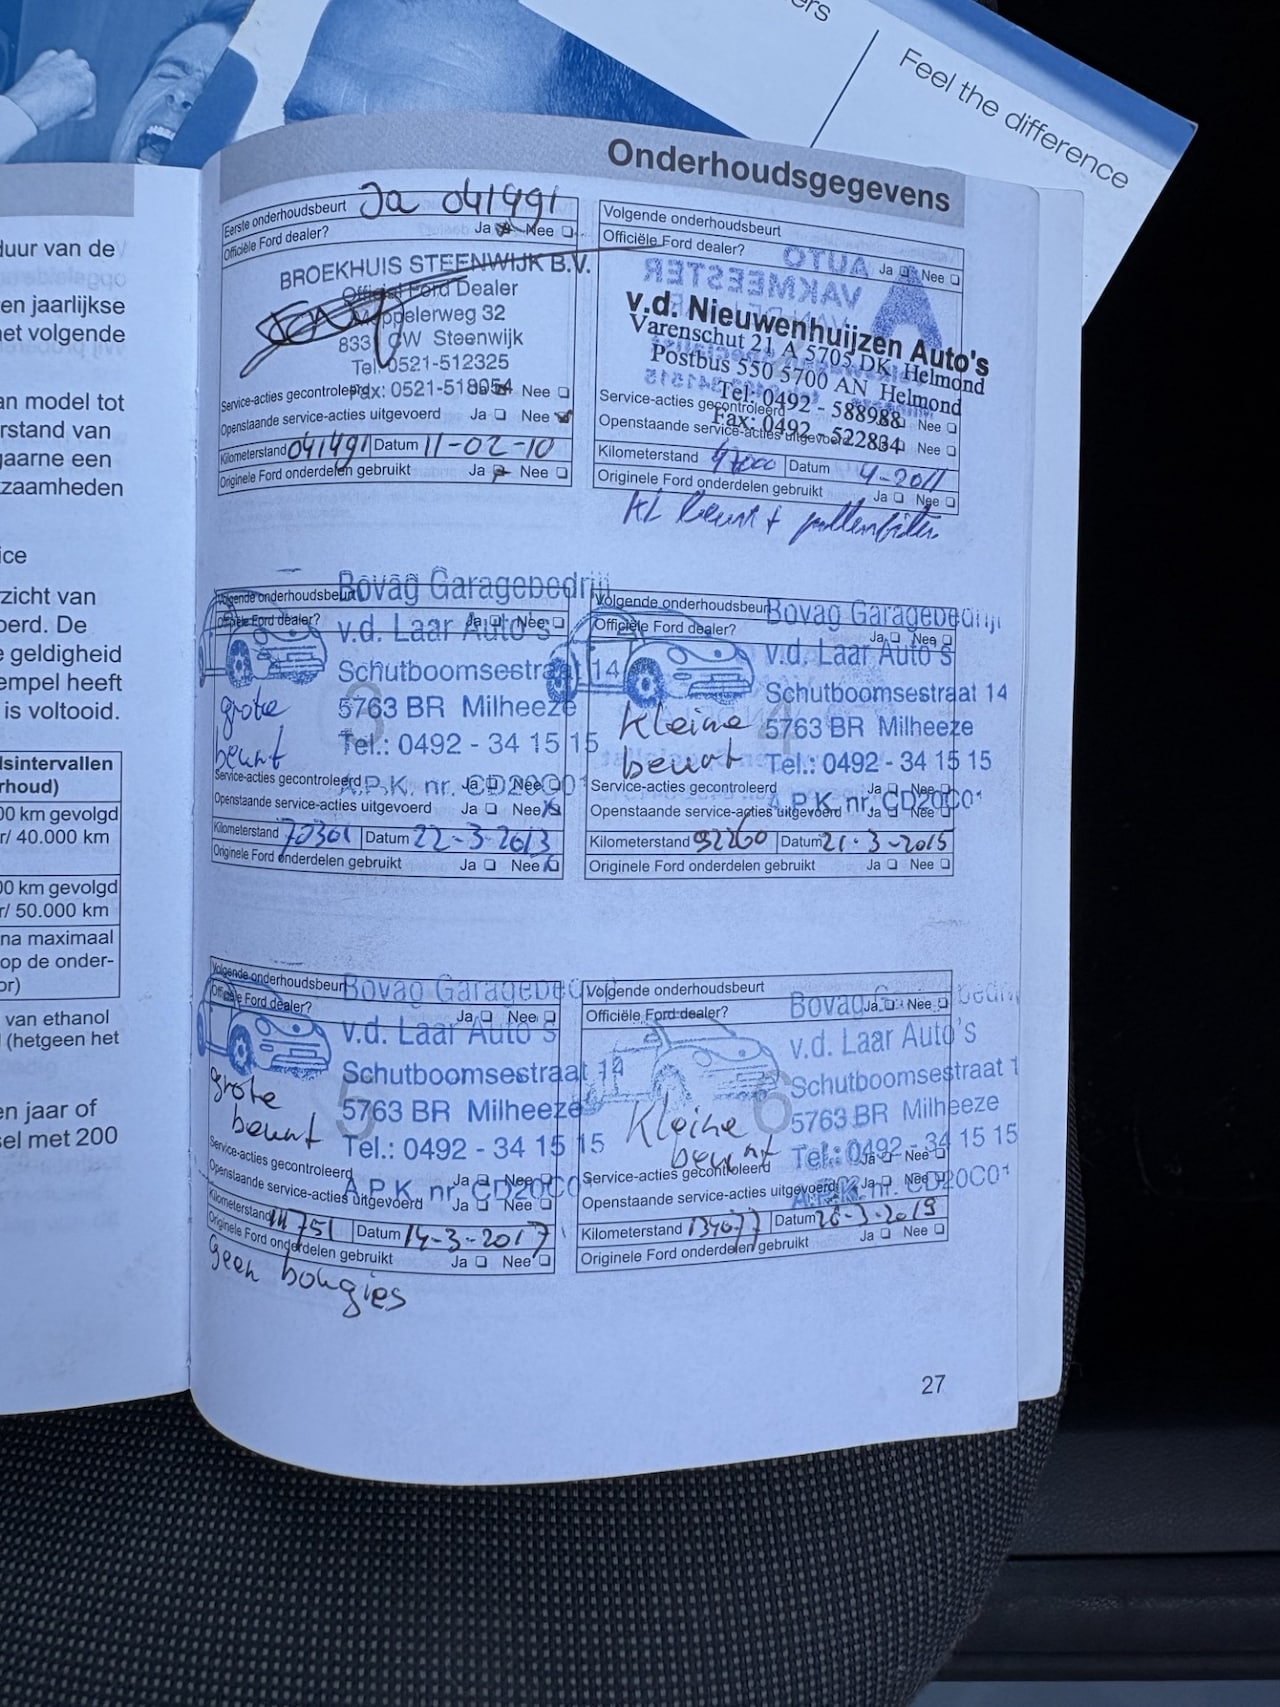 ers
Feel the difference
duur van de
en jaarlijkse
net volgende
an model tot
rstand van
gaarne een
zaamheden
ice
zicht van
oerd. De
e geldigheid
empel heeft
is voltooid.
lsintervallen
rhoud)
00 km gevolgd
r/ 40.000 km
00 km gevolgd
r/ 50.000 km
na maximaal
op de onder-
or)
van ethanol
(hetgeen het
en jaar of
sel met 200
Onderhoudsgegevens
Eerste onderhoudsbeurt Ja 041491
Officiële Ford dealer? Ja Nee
BROEKHUIS STEENWIJK B.V.
Official Ford Dealer
Meppelerweg 32
833 CW Steenwijk
Tel. 0521-512325
Fax: 0521-518054
Service-acties gecontroleerd Nee
Openstaande service-acties uitgevoerd Ja Nee
Kilometerstand 041491 Datum 11-02-10
Originele Ford onderdelen gebruikt Ja Nee
Volgende onderhoudsbeurt
Officiële Ford dealer? Ja Nee
AUTO
VAKMEESTER
v.d. Nieuwenhuijzen Auto's
Varenschut 21 A 5705 DK Helmond
Postbus 550 5700 AN Helmond
Tel: 0492 - 588988
Fax: 0492 - 522834
Service-acties gecontroleerd Nee
Openstaande service-acties uitgevoerd Nee
Kilometerstand 47000 Datum 4-2011
Originele Ford onderdelen gebruikt Ja Nee
kl beurt + pollenfilter
Volgende onderhoudsbeurt
Officiële Ford dealer? Ja Nee
Bovag Garagebedrijf
v.d. Laar Auto's
Schutboomsestraat 14
5763 BR Milheeze
Tel.: 0492 - 34 15 15
A.P.K. nr. CD20C01
3
grote
beurt
Service-acties gecontroleerd Ja Nee
Openstaande service-acties uitgevoerd Ja Nee
Kilometerstand 70301 Datum 22-3-2013
Originele Ford onderdelen gebruikt Ja Nee
Volgende onderhoudsbeurt
Officiële Ford dealer? Ja Nee
Bovag Garagebedrijf
v.d. Laar Auto's
Schutboomsestraat 14
5763 BR Milheeze
Tel.: 0492 - 34 15 15
A.P.K. nr. CD20C01
4
kleine
beurt
Service-acties gecontroleerd Ja Nee
Openstaande service-acties uitgevoerd Ja Nee
Kilometerstand 92260 Datum 21-3-2015
Originele Ford onderdelen gebruikt Ja Nee
Volgende onderhoudsbeurt
Officiële Ford dealer? Ja Nee
Bovag Garagebed
v.d. Laar Auto's
Schutboomsestraat 14
5763 BR Milheeze
Tel.: 0492 - 34 15 15
A.P.K. nr. CD20C0
5
grote
beurt
Service-acties gecontroleerd Ja Nee
Openstaande service-acties uitgevoerd Ja Nee
Kilometerstand 111751 Datum 14-3-2017
Originele Ford onderdelen gebruikt Ja Nee
geen bougies
Volgende onderhoudsbeurt
Officiële Ford dealer? Ja Nee
Bovag
v.d. Laar Auto's
Schutboomsestraat 1
5763 BR Milheeze
Tel.: 0492 - 34 15 15
A.P.K. nr. CD20C01
6
Kleine
beurt
Service-acties gecontroleerd Ja Nee
Openstaande service-acties uitgevoerd Ja Nee
Kilometerstand 134677 Datum 26-3-2019
Originele Ford onderdelen gebruikt Ja Nee
27